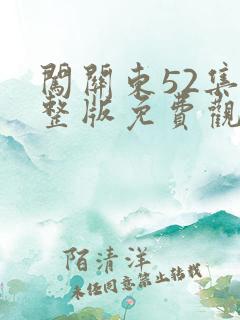 闖關東52集
整版免費觀
陌清洋
未经同意禁止转载